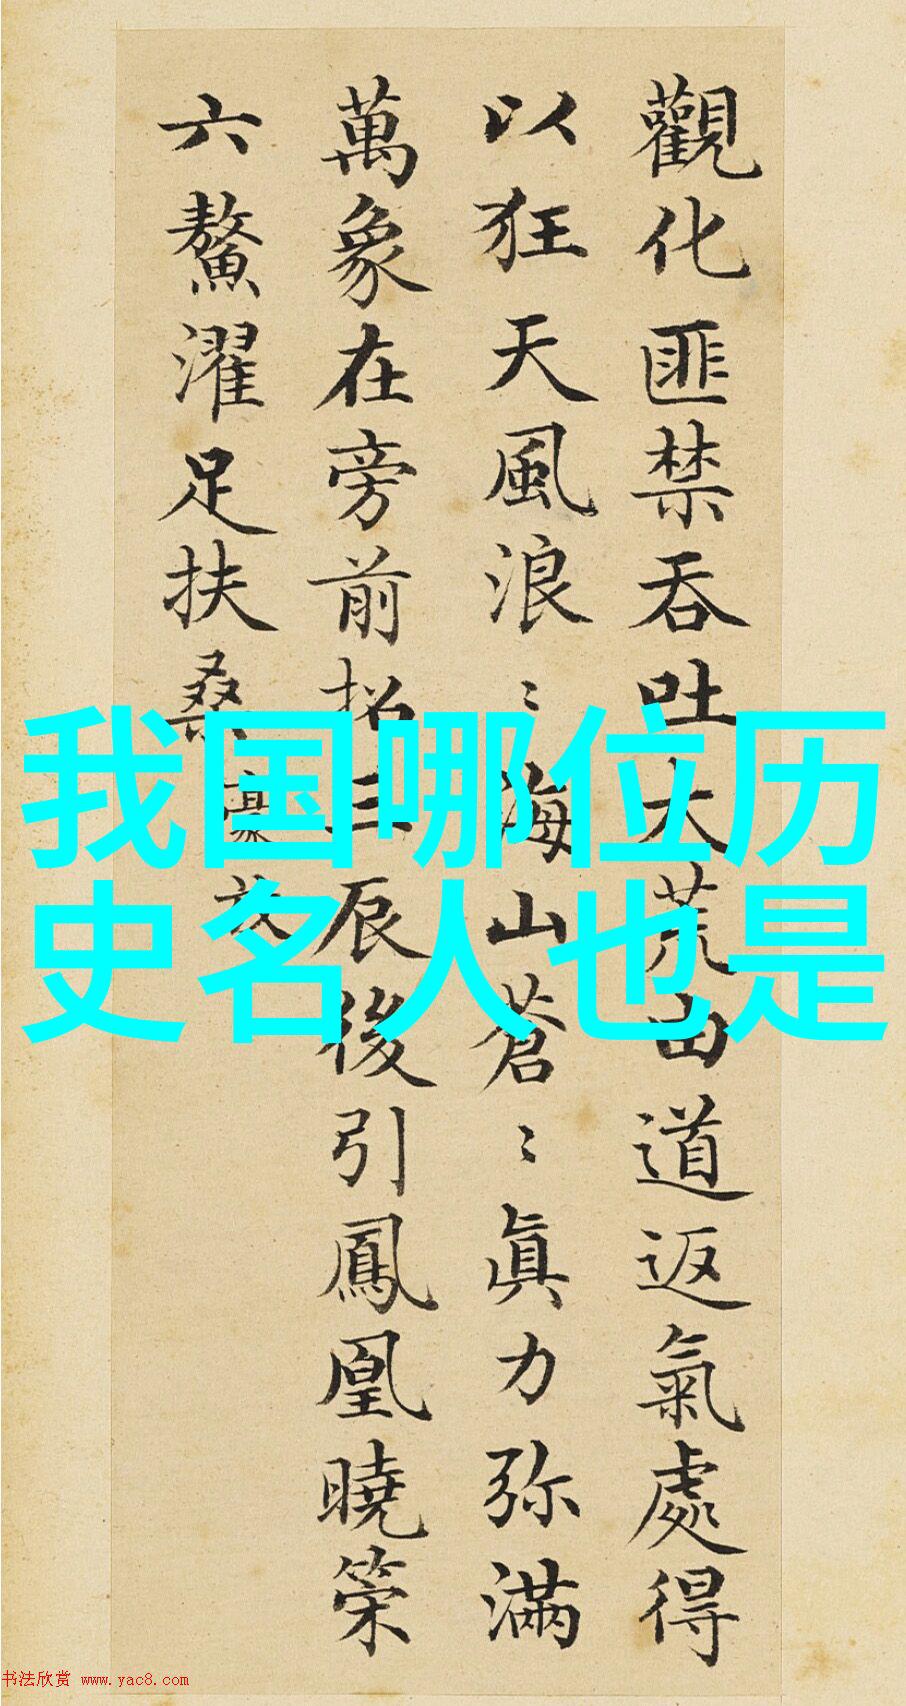 觀化匪禁吞吐大荒由道返氣處得
以狂天風浪〻海山蒼〻眞力弥滿
萬象在旁前招三辰後引鳳凰曉策
六鰲濯足扶桑豪放
我国哪位历
史名人也是
书法欣赏 www.yac8.com